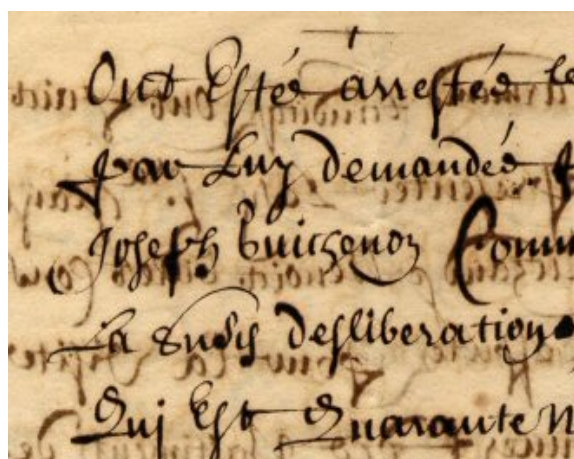 Ont Esté arrestés le
par Luy demandés.
Joseph Guichenon Comm
La susd desliberation
Qui Est Quarante N